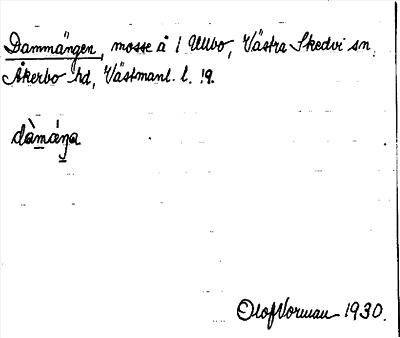 Dammängen, mosse å 1 Ullbo, Västra Skedvi sn,
Åkerbo hd, Västmanl. l. 19.
dàmáŋa
Olof Vorman 1930.